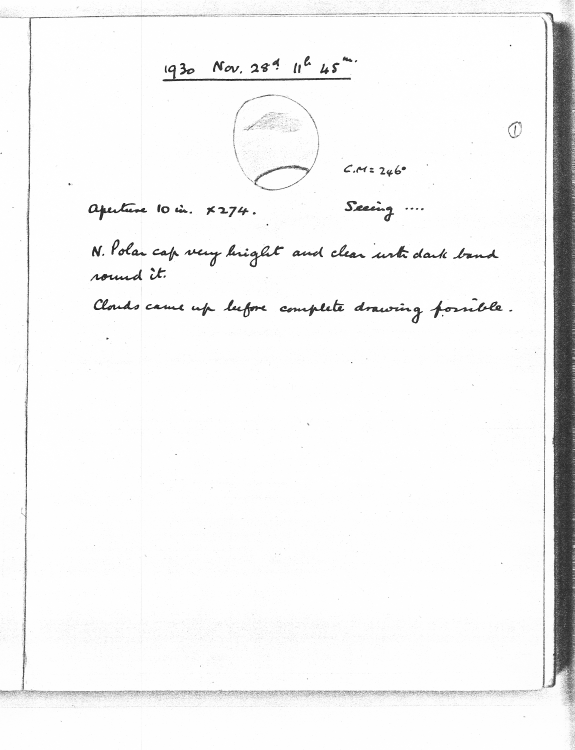 1930 Nov. 28d 11h 45m.
①
C.M = 246°
Aperture 10 in. ×274. Seeing ....
N. Polar cap very bright and clear with dark band
round it.
Clouds came up before complete drawing possible.